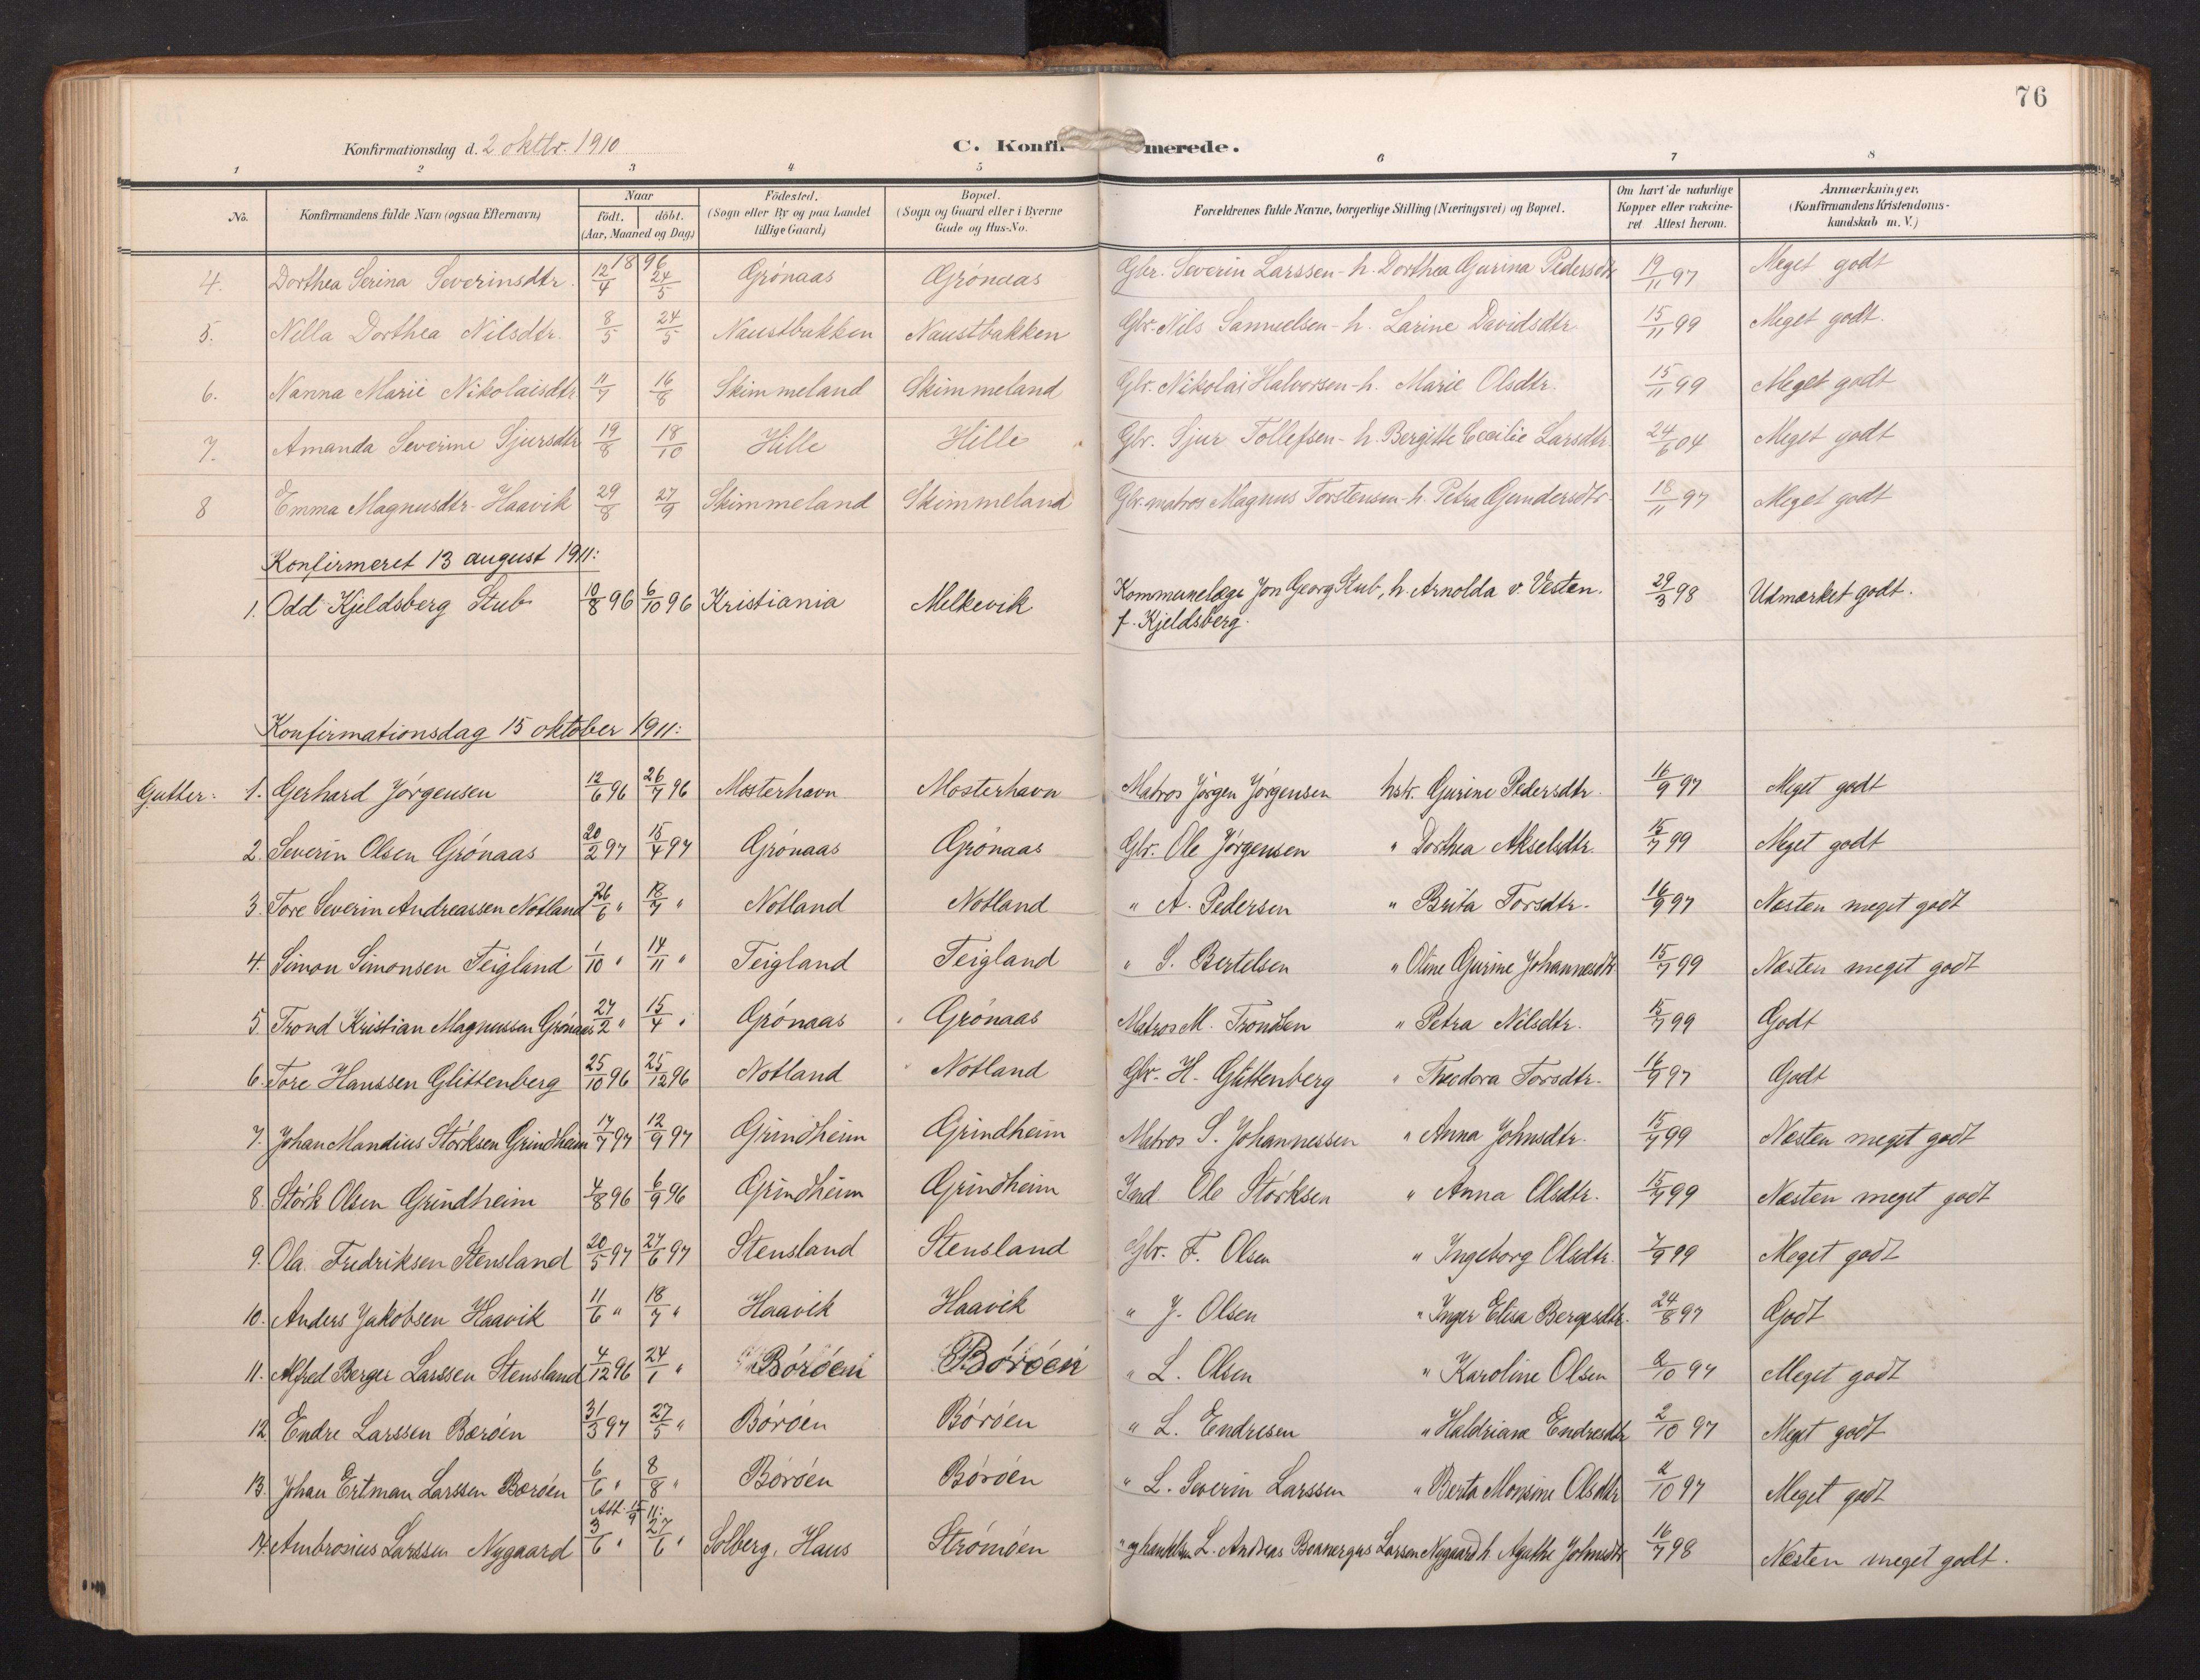 76
Konfirmationsdag d. 2 oktbr. 1910
C. Konfirmerede.
1 2 3 4 5 6 7 8
No. Konfirmandens fulde Navn (ogsaa Efternavn) Naar födt. döbt. (Aar, Maaned og Dag) Födested. (Sogn eller By og paa Landet tillige Gaard) Bopæl. (Sogn og Gaard eller i Byerne Gade og Hus-No. Forældrenes fulde Navne, borgerlige Stilling (Næringsvei) og Bopæl. Om havt de naturlige Kopper eller vakcineret Attest herom. Anmærkninger. (Konfirmandens Kristendomskundskab m. V.)
1896
4. Dorthea Serina Severinsdtr. 12/4 24/5 Grönaas Grönaas Gbr. Severin Larssen - h. Dorthea Gurina Pedersdtr 19/11 97 Meget godt
5. Nella Dorthea Nilsdtr. 8/5 24/5 Naustbakken Naustbakken Gbr. Nils Samuelsen - h. Larine Davidsdtr. 15/11 99 Meget godt.
6. Nanna Marie Nikolaisdtr 11/7 16/8 Skimmeland Skimmeland Gbr. Nikolai Halvorsen - h. Marie Olsdtr. 15/11 99 Meget godt
7. Amanda Severine Sjursdtr 19/8 18/10 Hille Hille Gbr. Sjur Tollefsen - h. Bergitte Cecilie Larsdtr. 24/6 04 Meget godt
8 Emma Magnusdtr. Haavik 29/8 27/9 Skimmeland Skimmeland Gbr. matros Magnus Torstensen - h. Petra Gundersdtr. 18/11 97 Meget godt
Konfirmeret 13 august 1911:
1. Odd Kjeldsberg Stub 10/8 96 6/10 96 Kristiania Melkevik Kommunelæge Jon Georg Stub, h. Arnolda v. Vesten. 29/3 98 Udmærket godt.
f. Kjeldsberg.
Konfirmationsdag 15 oktober 1911:
Gutter: 1. Gerhard Jörgensen 12/6 96 26/7 96 Mosterhavn Mosterhavn Matros Jörgen Jörgensen hstr. Gurine Pedersdtr. 16/9 97 Meget godt
2. Severin Olsen Grönaas 20/2 97 15/4 97 Grönaas Grönaas Gbr. Ole Jörgensen " Dorthea Akselsdtr. 15/7 99 Meget godt
3. Tore Severin Andreassen Notland 26/6 " 18/7 " Notland Notland " A. Pedersen " Brita Torsdtr. 16/9 97 Næsten meget godt
4. Simon Simonsen Teigland 1/10 " 14/11 " Teigland Teigland " S. Bertelsen " Oline Gurine Johannesdtr 15/7 99 Næsten meget godt
5. Trond Kristian Magnussen Grönaas 27/2 " 15/4 " Grönaas Grönaas Matros M. Trondsen " Petra Nilsdtr. 15/7 99 Godt
6. Tore Hanssen Glittenberg 25/10 96 25/12 96 Notland Notland Gbr. H. Glittenberg " Theodora Torsdtr. 16/9 97 Godt
7. Johan Mandius Störksen Grindheim 17/7 97 12/9 97 Grindheim Grindheim Matros S. Johannessen " Anna Johnsdtr. 15/7 99 Næsten meget godt
8. Störk Olsen Grindheim 4/8 96 6/9 96 Grindheim Grindheim Ole Störksen " Anna Olsdtr. 15/7 99 Næsten meget godt
9. Ola Fredriksen Stensland 20/5 97 27/6 97 Stensland Stensland Gbr. F. Olsen " Ingeborg Olsdtr. 7/9 99 Meget godt
10. Anders Jakobsen Haavik 11/6 " 18/7 " Haavik Haavik " J. Olsen " Inger Elisa Bergesdtr. 24/8 97 Godt
11. Alfred Berger Larssen Stensland 4/12 96 24/1 " Böröen Böröen " L. Olsen " Karoline Olsen 2/10 97 Meget godt
12. Endre Larssen Bœröen 31/3 97 27/5 " Böröen Böröen " L. Endresen " Haldriane Endresdtr 2/10 97 Meget godt
13. Johan Ertman Larssen Bœröen 6/6 " 8/8 " Böröen Böröen " L. Severin Larssen " Berta Monsine Olsdtr 2/10 97 Meget godt
Att. 15/9 11:
14. Ambrosius Larssen Nygaard 3/6 " 27/6 " Solberg, Haus Strömöen " og L. Andreas Larsen Nygaard h. Agathe Johnsdtr 16/7 98 Næsten meget godt.